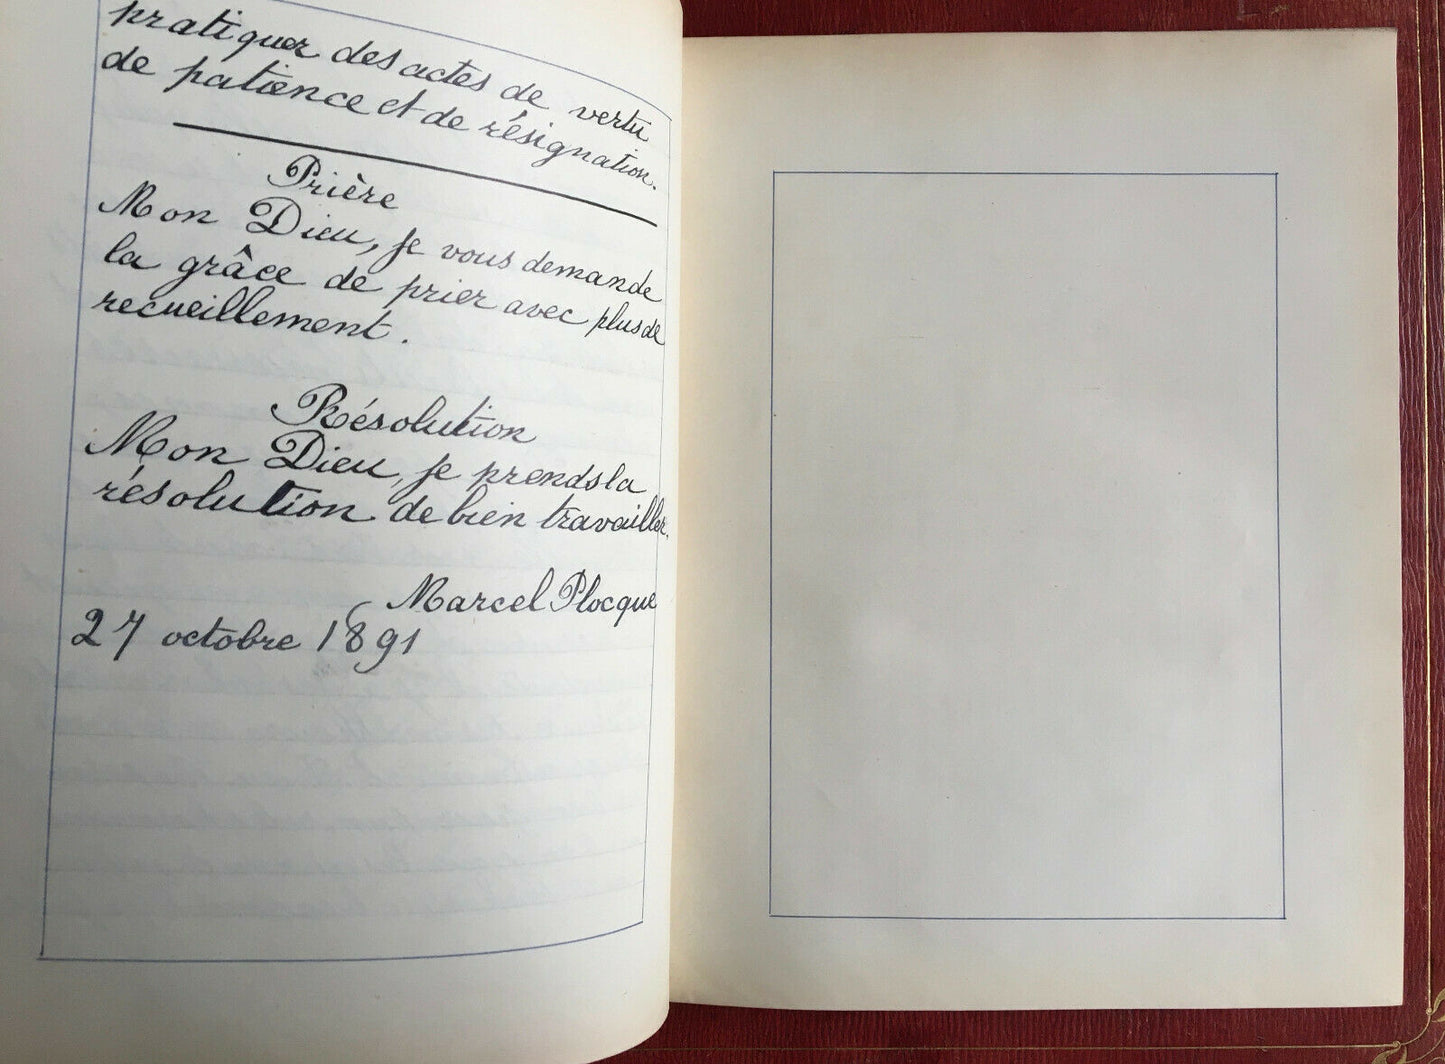 pratiquer des actes de vertu
de patience et de résignation.
Prière
Mon Dieu, je vous demande
la grâce de prier avec plus de
recueillement.
Résolution
Mon Dieu, je prends la
résolution de bien travailler.
Marcel Plocque
27 octobre 1891